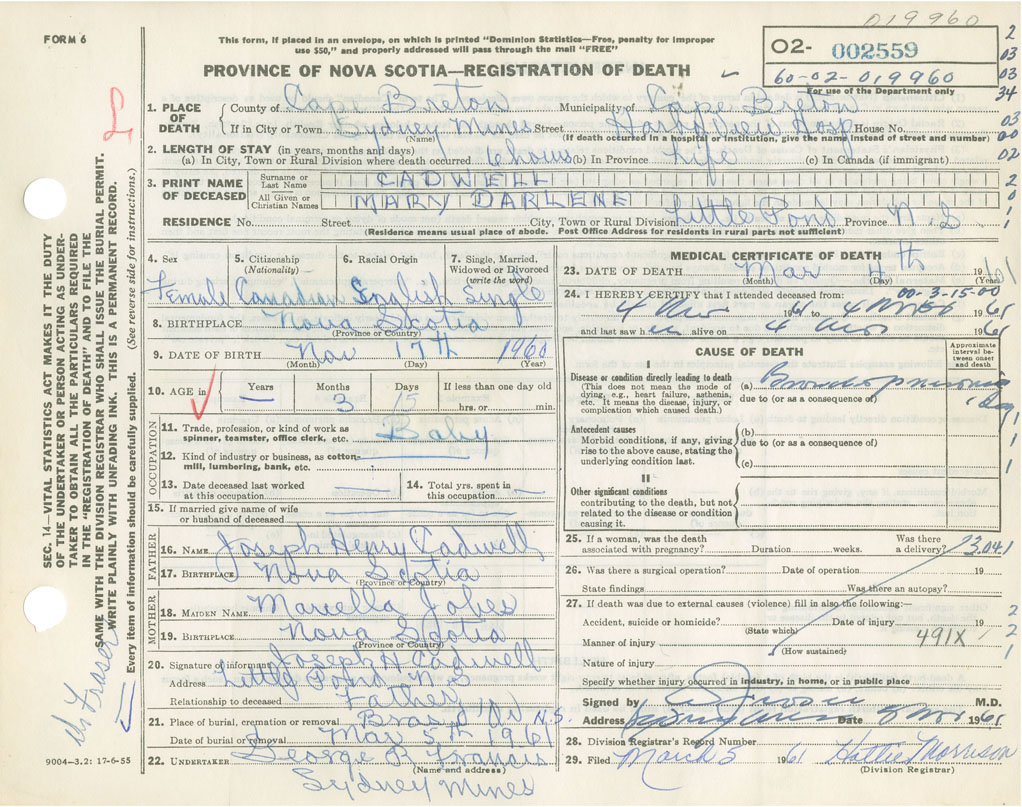 019960
FORM 6
This form, if placed in an envelope, on which is printed "Dominion Statistics—Free, penalty for improper
use $50," and properly addressed will pass through the mail "FREE"
02- 002559
60-02-019960
For use of the Department only
PROVINCE OF NOVA SCOTIA—REGISTRATION OF DEATH
1. PLACE OF DEATH { County of Cape Breton Municipality of Cape Breton
If in City or Town Sydney Mines Street Harbor View Hosp House No.
(Name) (If death occurred in a hospital or institution, give the name instead of street and number)
2. LENGTH OF STAY (in years, months and days)
(a) In City, Town or Rural Division where death occurred 6 hours (b) In Province Life (c) In Canada (if immigrant)
3. PRINT NAME OF DECEASED
Surname or Last Name CADWELL
All Given or Christian Names MARY DARLENE
RESIDENCE No. Street City, Town or Rural Division Little Pond Province N.S
(Residence means usual place of abode. Post Office Address for residents in rural parts not sufficient)
4. Sex 5. Citizenship (Nationality) 6. Racial Origin 7. Single, Married, Widowed or Divorced (write the word)
Female Canadian English Single
8. BIRTHPLACE Nova Scotia
(Province or Country)
9. DATE OF BIRTH Nov 17th 1960
(Month) (Day) (Year)
10. AGE in Years Months Days If less than one day old
— 3 15 hrs. or min.
OCCUPATION
11. Trade, profession, or kind of work as spinner, teamster, office clerk, etc. Baby
12. Kind of industry or business, as cotton-mill, lumbering, bank, etc.
13. Date deceased last worked at this occupation 14. Total yrs. spent in this occupation
15. If married give name of wife or husband of deceased
FATHER
16. NAME Joseph Henry Cadwell
17. BIRTHPLACE Nova Scotia
(Province or Country)
MOTHER
18. MAIDEN NAME Marcella
19. BIRTHPLACE Nova Scotia
(Province or Country)
20. Signature of informant Joseph H Cadwell
Address Little Pond N S
Relationship to deceased Father
21. Place of burial, cremation or removal Bras d'Or N.S.
Date of burial or removal Mar 5th 1961
22. UNDERTAKER George R Francis
(Name and address)
Sydney Mines
MEDICAL CERTIFICATE OF DEATH
23. DATE OF DEATH Mar 4th 1961
(Month) (Day)
24. I HEREBY CERTIFY that I attended deceased from: 00-3-15-00
4 1961 to 4 1961
and last saw h alive on 4 1961
CAUSE OF DEATH
Approximate interval between onset and death
I
Disease or condition directly leading to death
(This does not mean the mode of dying, e.g., heart failure, asthenia, etc. It means the disease, injury, or complication which caused death.)
(a) Bronchopneumonia 1 Day
due to (or as a consequence of)
Antecedent causes
Morbid conditions, if any, giving rise to the above cause, stating the underlying condition last.
(b)
due to (or as a consequence of)
(c)
II
Other significant conditions
contributing to the death, but not related to the disease or condition causing it.
25. If a woman, was the death associated with pregnancy? Duration weeks. Was there a delivery?
26. Was there a surgical operation? Date of operation 19
State findings Was there an autopsy?
27. If death was due to external causes (violence) fill in also the following:—
Accident, suicide or homicide? Date of injury 19
(State which)
Manner of injury 491X
(How sustained)
Nature of injury
Specify whether injury occurred in industry, in home, or in public place
Signed by M.D.
Address Sydney Mines Date 5 1961
28. Division Registrar's Record Number
29. Filed March 5 1961 Hattie Morrison
(Division Registrar)
SEC. 14—VITAL STATISTICS ACT MAKES IT THE DUTY
OF THE UNDERTAKER OR PERSON ACTING AS UNDER-
TAKER TO OBTAIN ALL THE PARTICULARS REQUIRED
IN THE "REGISTRATION OF DEATH" AND TO FILE THE
SAME WITH THE DIVISION REGISTRAR WHO SHALL ISSUE THE BURIAL PERMIT.
WRITE PLAINLY WITH UNFADING INK. THIS IS A PERMANENT RECORD.
Every item of information should be carefully supplied. (See reverse side for instructions.)
Dr Fraser
9004-3.2: 17-6-55
2
03
03
34
03
00
02
2
0
1
1
1
1
2
2
1